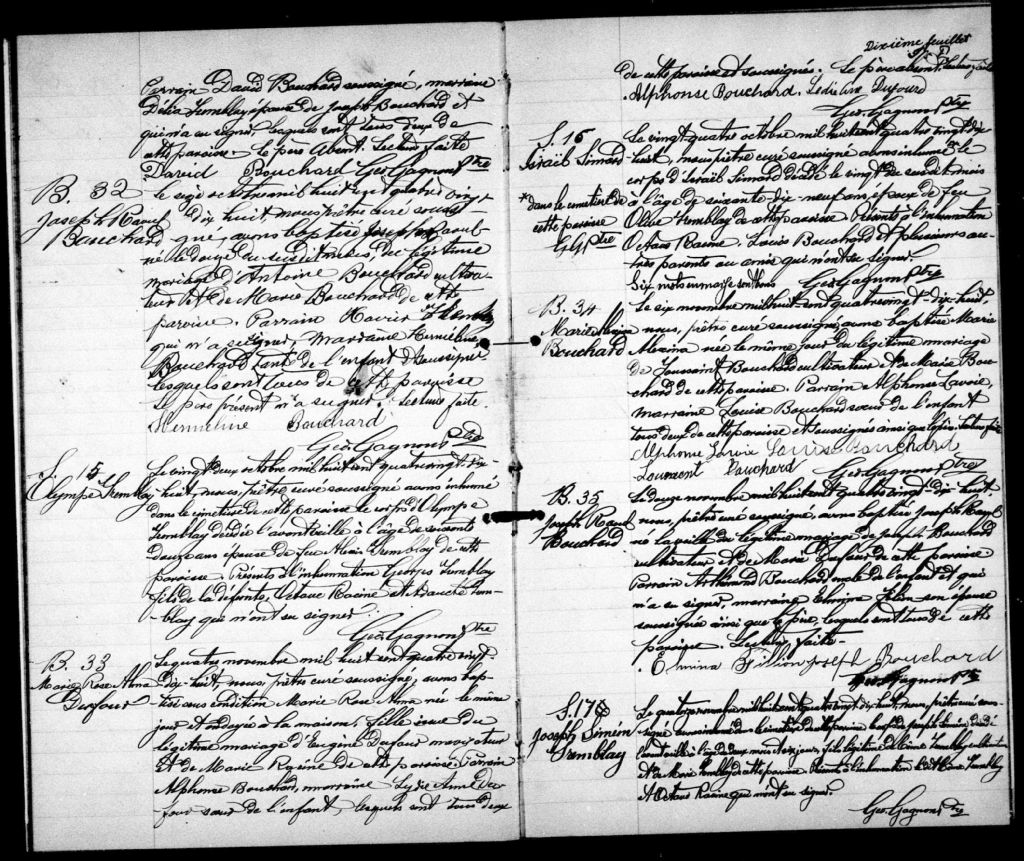 Parrain David Bouchard soussigné, marraine
Délia Tremblay épouse de Joseph Bouchard et
qui n'a su signer, lesquels sont tous deux de
cette paroisse. Le père absent. Lecture faite
David Bouchard Geo. Gagnon Ptre
B. 32
Joseph
Bouchard
Le seize octobre mil huit cent quatre vingt
dix huit, nous prêtre curé soussi-
gné, avons baptisé Joseph
né le douze du susdit mois, du légitime
mariage d'Antoine Bouchard cultiva-
teur et de Marie Bouchard de cette
paroisse. Parrain Xavier Tremblay
qui n'a su signer, marraine Herméline
Bouchard tante de l'enfant soussignée
lesquels sont tous de cette paroisse
Le père présent n'a su signer. Lecture faite.
Herméline Bouchard
Geo. Gagnon Ptre
S. 15
Olympe Tremblay
Le vingt deux octobre mil huit cent quatre vingt dix
huit, nous, prêtre curé soussigné avons inhumé
dans le cimetière de cette paroisse le corps d'Olympe
Tremblay décédée l'avant veille à l'âge de soixante
douze ans épouse de feu Alexis Tremblay de cette
paroisse. Présents à l'inhumation Georges Tremblay
fils de la défunte, Octave Racine et Trem-
blay qui n'ont su signer.
Geo. Gagnon Ptre
B. 33
Marie Rose Alma
Dufour
Le quatre novembre mil huit cent quatre vingt
dix-huit, nous, prêtre curé soussigné, avons bap-
tisé sous condition Marie Rose Alma née le même
jour et ondoyée à la maison, fille issue du
légitime mariage d'Eugène Dufour navigateur
et de Marie Racine de cette paroisse. Parrain
Alphonse Bouchard, marraine Lydie Du-
four sœur de l'enfant, lesquels sont tous deux
Dixième feuillet
de cette paroisse et soussignés. Le père absent. Lecture faite
Alphonse Bouchard. Dufour
Geo. Gagnon Ptre
S. 16
Israël Simard
Le vingt quatre octobre mil huit cent quatre vingt dix
huit, nous prêtre curé soussigné avons inhumé * le
corps d'Israël Simard décédé le vingt du susdit mois
* dans le cimetière de
cette paroisse
G.G. Ptre
à l'âge de soixante-dix-neuf ans époux de feu
Olive Tremblay de cette paroisse. Présents à l'inhumation
Octave Racine, Louis Bouchard et plusieurs au-
tres parents ou amis qui n'ont su signer.
Six mots en marge sont bons Geo. Gagnon Ptre
B. 34
Marie
Bouchard
Le six novembre mil huit cent quatre vingt-dix-huit,
nous, prêtre curé soussigné, avons baptisé Marie
née le même jour du légitime mariage
de Toussaint Bouchard cultivateur et de Marie Bou-
chard de cette paroisse. Parrain Alphonse Lavoie,
marraine Louise Bouchard sœur de l'enfant
tous deux de cette paroisse et soussignés ainsi que le père. Lecture faite
Alphonse Lavoie Louise Bouchard
Bouchard Geo. Gagnon Ptre
B. 35
Joseph Raoul
Bouchard
Le douze novembre mil huit cent quatre vingt-dix-huit,
nous, prêtre curé soussigné, avons baptisé Joseph Raoul
né la veille du légitime mariage de Joseph Bouchard
cultivateur et de Marie Dufour de cette paroisse
Parrain Bouchard oncle de l'enfant et qui
n'a su signer, marraine Elmina Fillion son épouse
soussignée ainsi que le père, lesquels sont tous de cette
paroisse. Lecture faite.
Elmina Fillion Joseph Bouchard
Geo. Gagnon Ptre
S. 17
Joseph Siméon
Tremblay
Le quatorze novembre mil huit cent quatre vingt dix huit, nous, prêtre curé sous-
signé avons inhumé dans le cimetière de cette paroisse le corps de Joseph Siméon décédé
l'avant veille à l'âge de deux mois et jours, fils légitime de Tremblay cultivateur
et de Marie Tremblay de cette paroisse. Présents à l'inhumation Tremblay
et Octave Racine qui n'ont su signer.
Geo. Gagnon Ptre